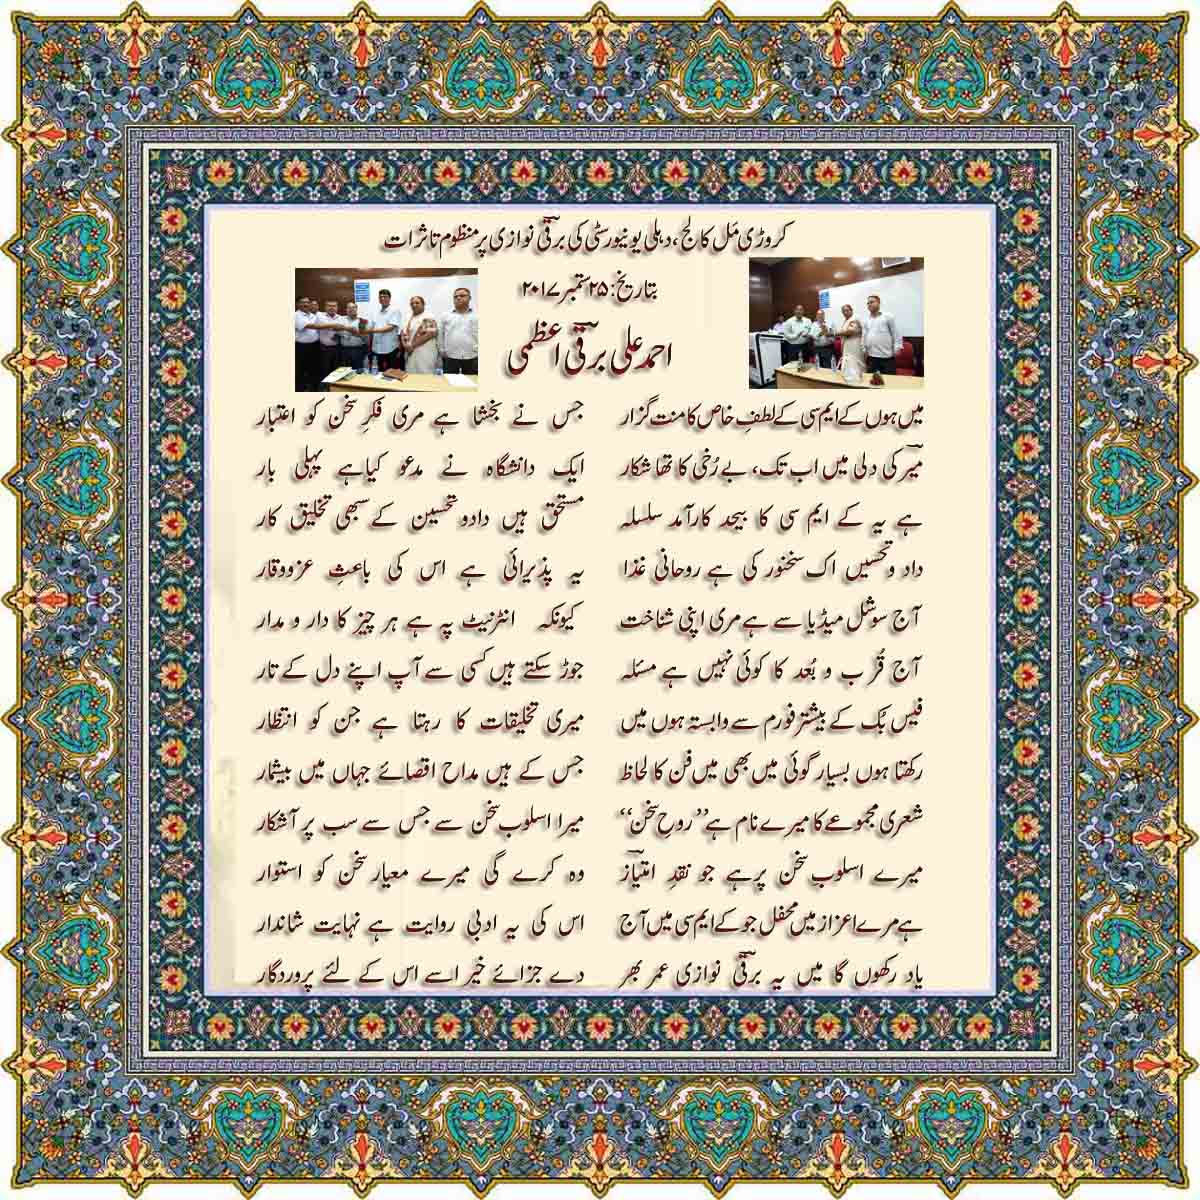 کروڑی مَل کالج، دہلی یونیورسٹی کی برقیؔ نوازی پر منظوم تاثرات
بتاریخ: ۲۵ ستمبر ۲۰۱۷
احمد علی برقیؔ اعظمی
میں ہوں کے ایم سی کے لطفِ خاص کا منت گزار جس نے بخشا ہے مری فکرِ سخن کو اعتبار
میرؔ کی دلی میں اب تک، بے رُخی کا تھا شکار ایک دانشگاہ نے مدعو کیاہے پہلی بار
ہے یہ کے ایم سی کا بیحد کارآمد سلسلہ مستحق ہیں دادو تحسین کے سبھی تخلیق کار
داد و تحسیں اک سخنور کی ہے روحانی غذا یہ پذیرائی ہے اس کی باعثِ عزووقار
آج سوشل میڈیا سے ہے مری اپنی شناخت کیونکہ انٹرنیٹ پہ ہے ہر چیز کا دار و مدار
آج قُرب و بُعد کا کوئی نہیں ہے مسئلہ جوڑ سکتے ہیں کسی سے آپ اپنے دل کے تار
فیس بُک کے بیشتر فورم سے وابستہ ہوں میں میری تخلیقات کا رہتا ہے جن کو انتظار
رکھتا ہوں بسیار گوئی میں بھی میں فن کا لحاظ جس کے ہیں مداح اقصائے جہاں میں بیشمار
شعری مجموعے کا میرے نام ہے ’’روحِ سخن‘‘ میرا اسلوب سخن سے جس سے سب پر آشکار
میرے اسلوب سخن پرہے جو نقدِ امتیازؔ وہ کرے گی میرے معیار سخن کو استوار
ہے مرے اعزاز میں محفل جو کے ایم سی میں آج اس کی یہ ادبی روایت ہے نہایت شاندار
یاد رکھوں گا میں یہ برقیؔ نوازی عمر بھر دے جزائے خیر اسے اس کے لئے پروردگار